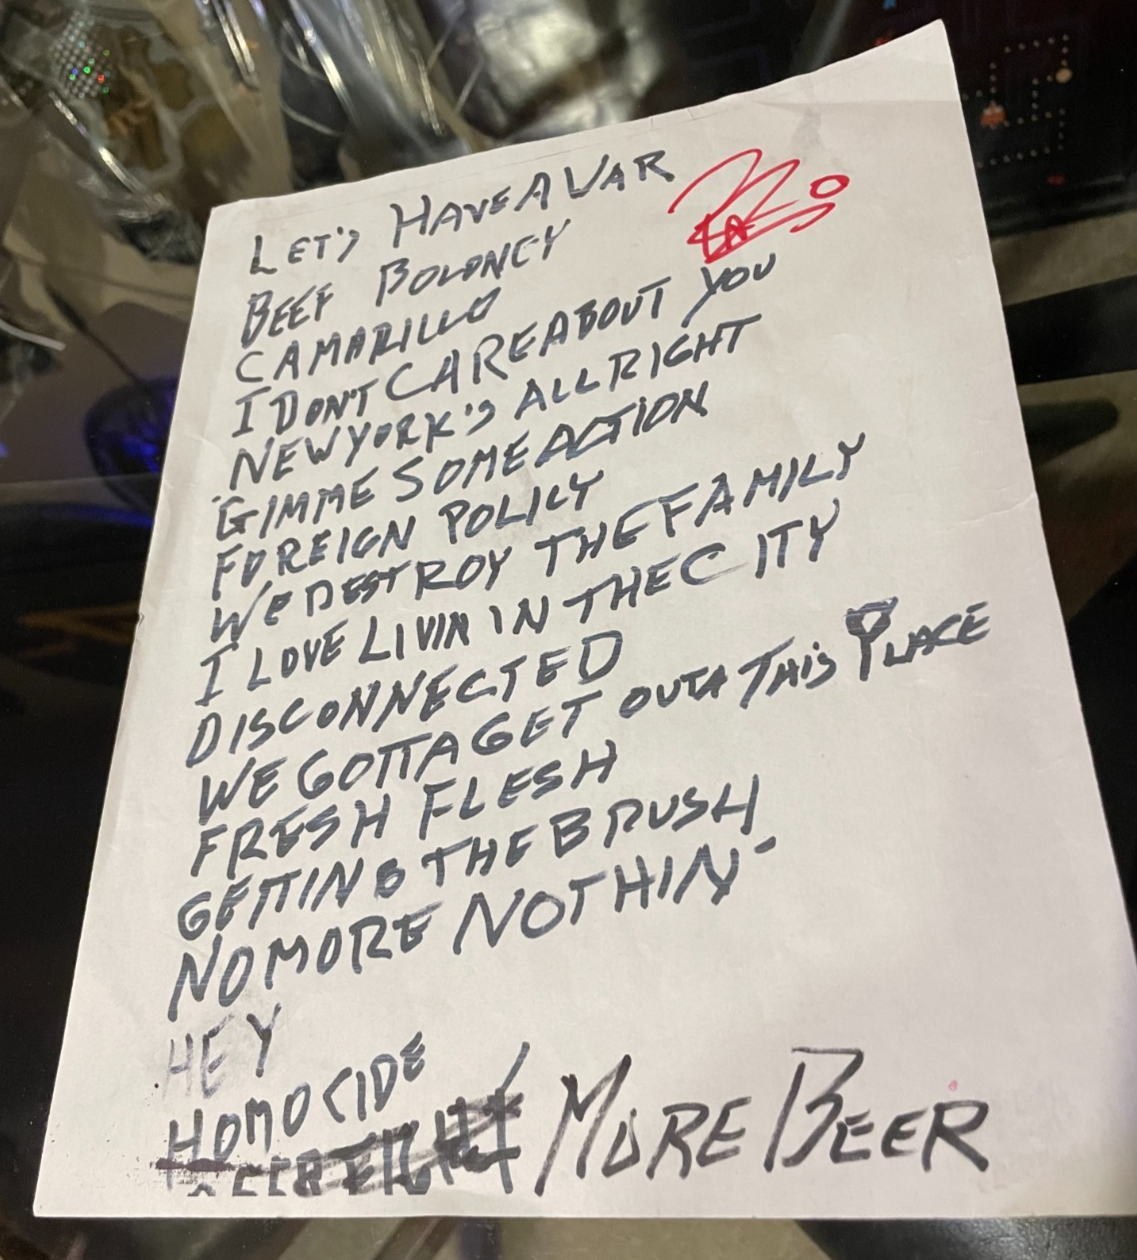 LET'S HAVE A WAR
BEEF BOLONEY
CAMARILLO
I DON'T CARE ABOUT YOU
NEW YORK'S ALL RIGHT
GIMME SOME ACTION
FOREIGN POLICY
WE DESTROY THE FAMILY
I LOVE LIVIN IN THE CITY
DISCONNECTED
WE GOTTA GET OUTA THIS PLACE
FRESH FLESH
GETTING THE BRUSH
NO MORE NOTHIN'
HEY
HOMOCIDE
MORE BEER